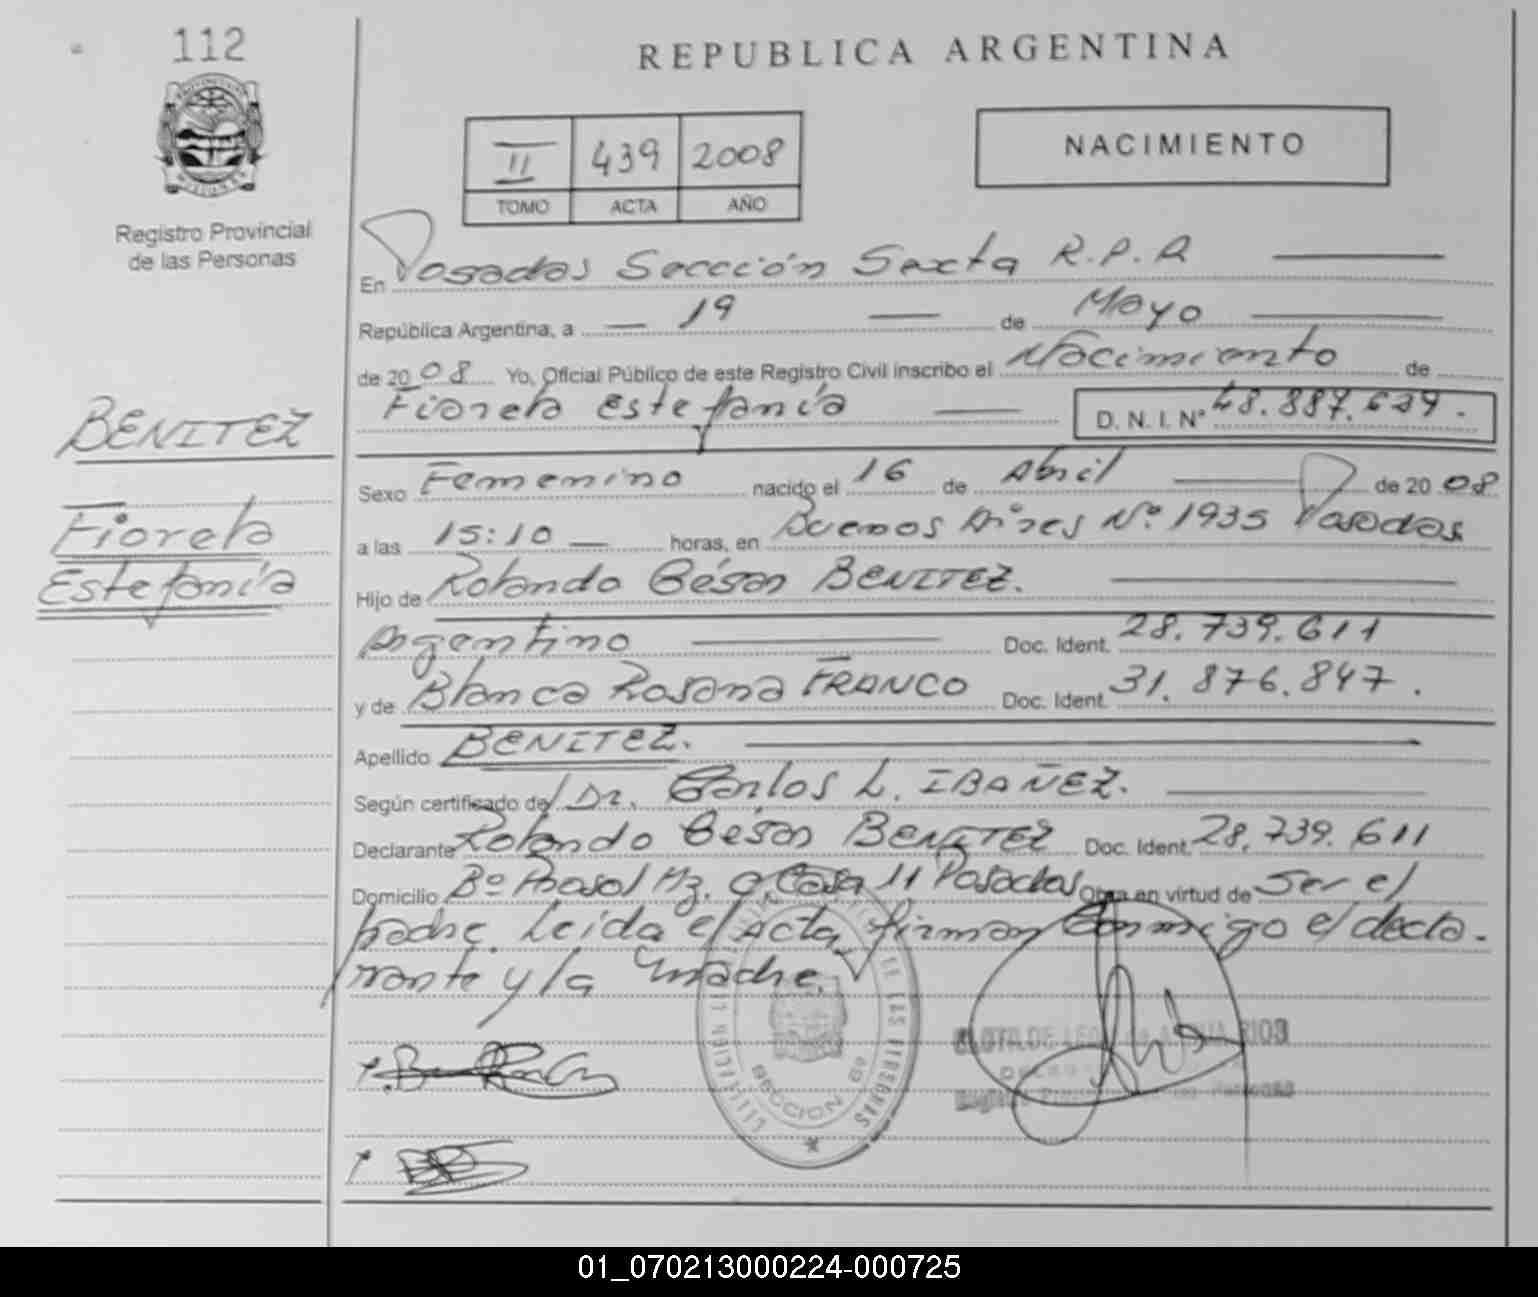 112
Registro Provincial
de las Personas
REPUBLICA ARGENTINA
II 439 2008
TOMO ACTA AÑO
NACIMIENTO
En Posadas Sección Sexta R.P.P.
República Argentina, a 19 de Mayo
de 2008 Yo, Oficial Público de este Registro Civil inscribo el Nacimiento de
Fiorela Estefanía D. N. I. Nº 48.887.639.
BENITEZ
Fiorela
Estefanía
Sexo Femenino nacido el 16 de Abril de 2008
a las 15:10 horas, en Buenos Aires Nº 1935 Posadas
Hijo de Rolando César BENITEZ.
Argentino Doc. Ident. 28.739.611
y de Blanca Rosana FRANCO Doc. Ident. 31.876.847.
Apellido BENITEZ.
Según certificado de/ Dr. Carlos L. IBAÑEZ.
Declarante Rolando César BENITEZ Doc. Ident. 28.739.611
Domicilio Bº Casa 11 Posadas Obra en virtud de Ser el
padre. Leída el Acta, firman Conmigo el decla-
rante y la madre.
SECCION 6º
DE LAS PERSONAS
01_070213000224-000725